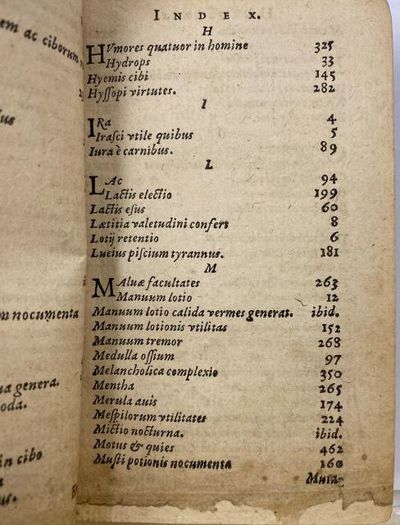 em ac ciborum
INDEX.
H
HVmores quatuor in homine 325
Hydrops 33
Hyemis cibi 145
Hyssopi virtutes. 282
I
IRa 4
Irasci vtile quibus 5
Iura è carnibus. 89
L
LAc 94
Lactis electio 199
Lactis esus 60
Lætitia valetudini confert 8
Lotij retentio 6
Lucius piscium tyrannus. 181
M
MAluæ facultates 263
Manuum lotio 12
Manuum lotio calida vermes generat. ibid.
m nocumenta
Manuum lotionis vtilitas 152
Manuum tremor 268
Medulla ossium 97
Melancholica complexio 350
a genera.
Mentha 265
oda.
Merula auis 174
Mespilorum vtilitates 224
Mictio nocturna. ibid.
Motus & quies 462
in cibo
Musti potionis nocumenta 160
Musa-